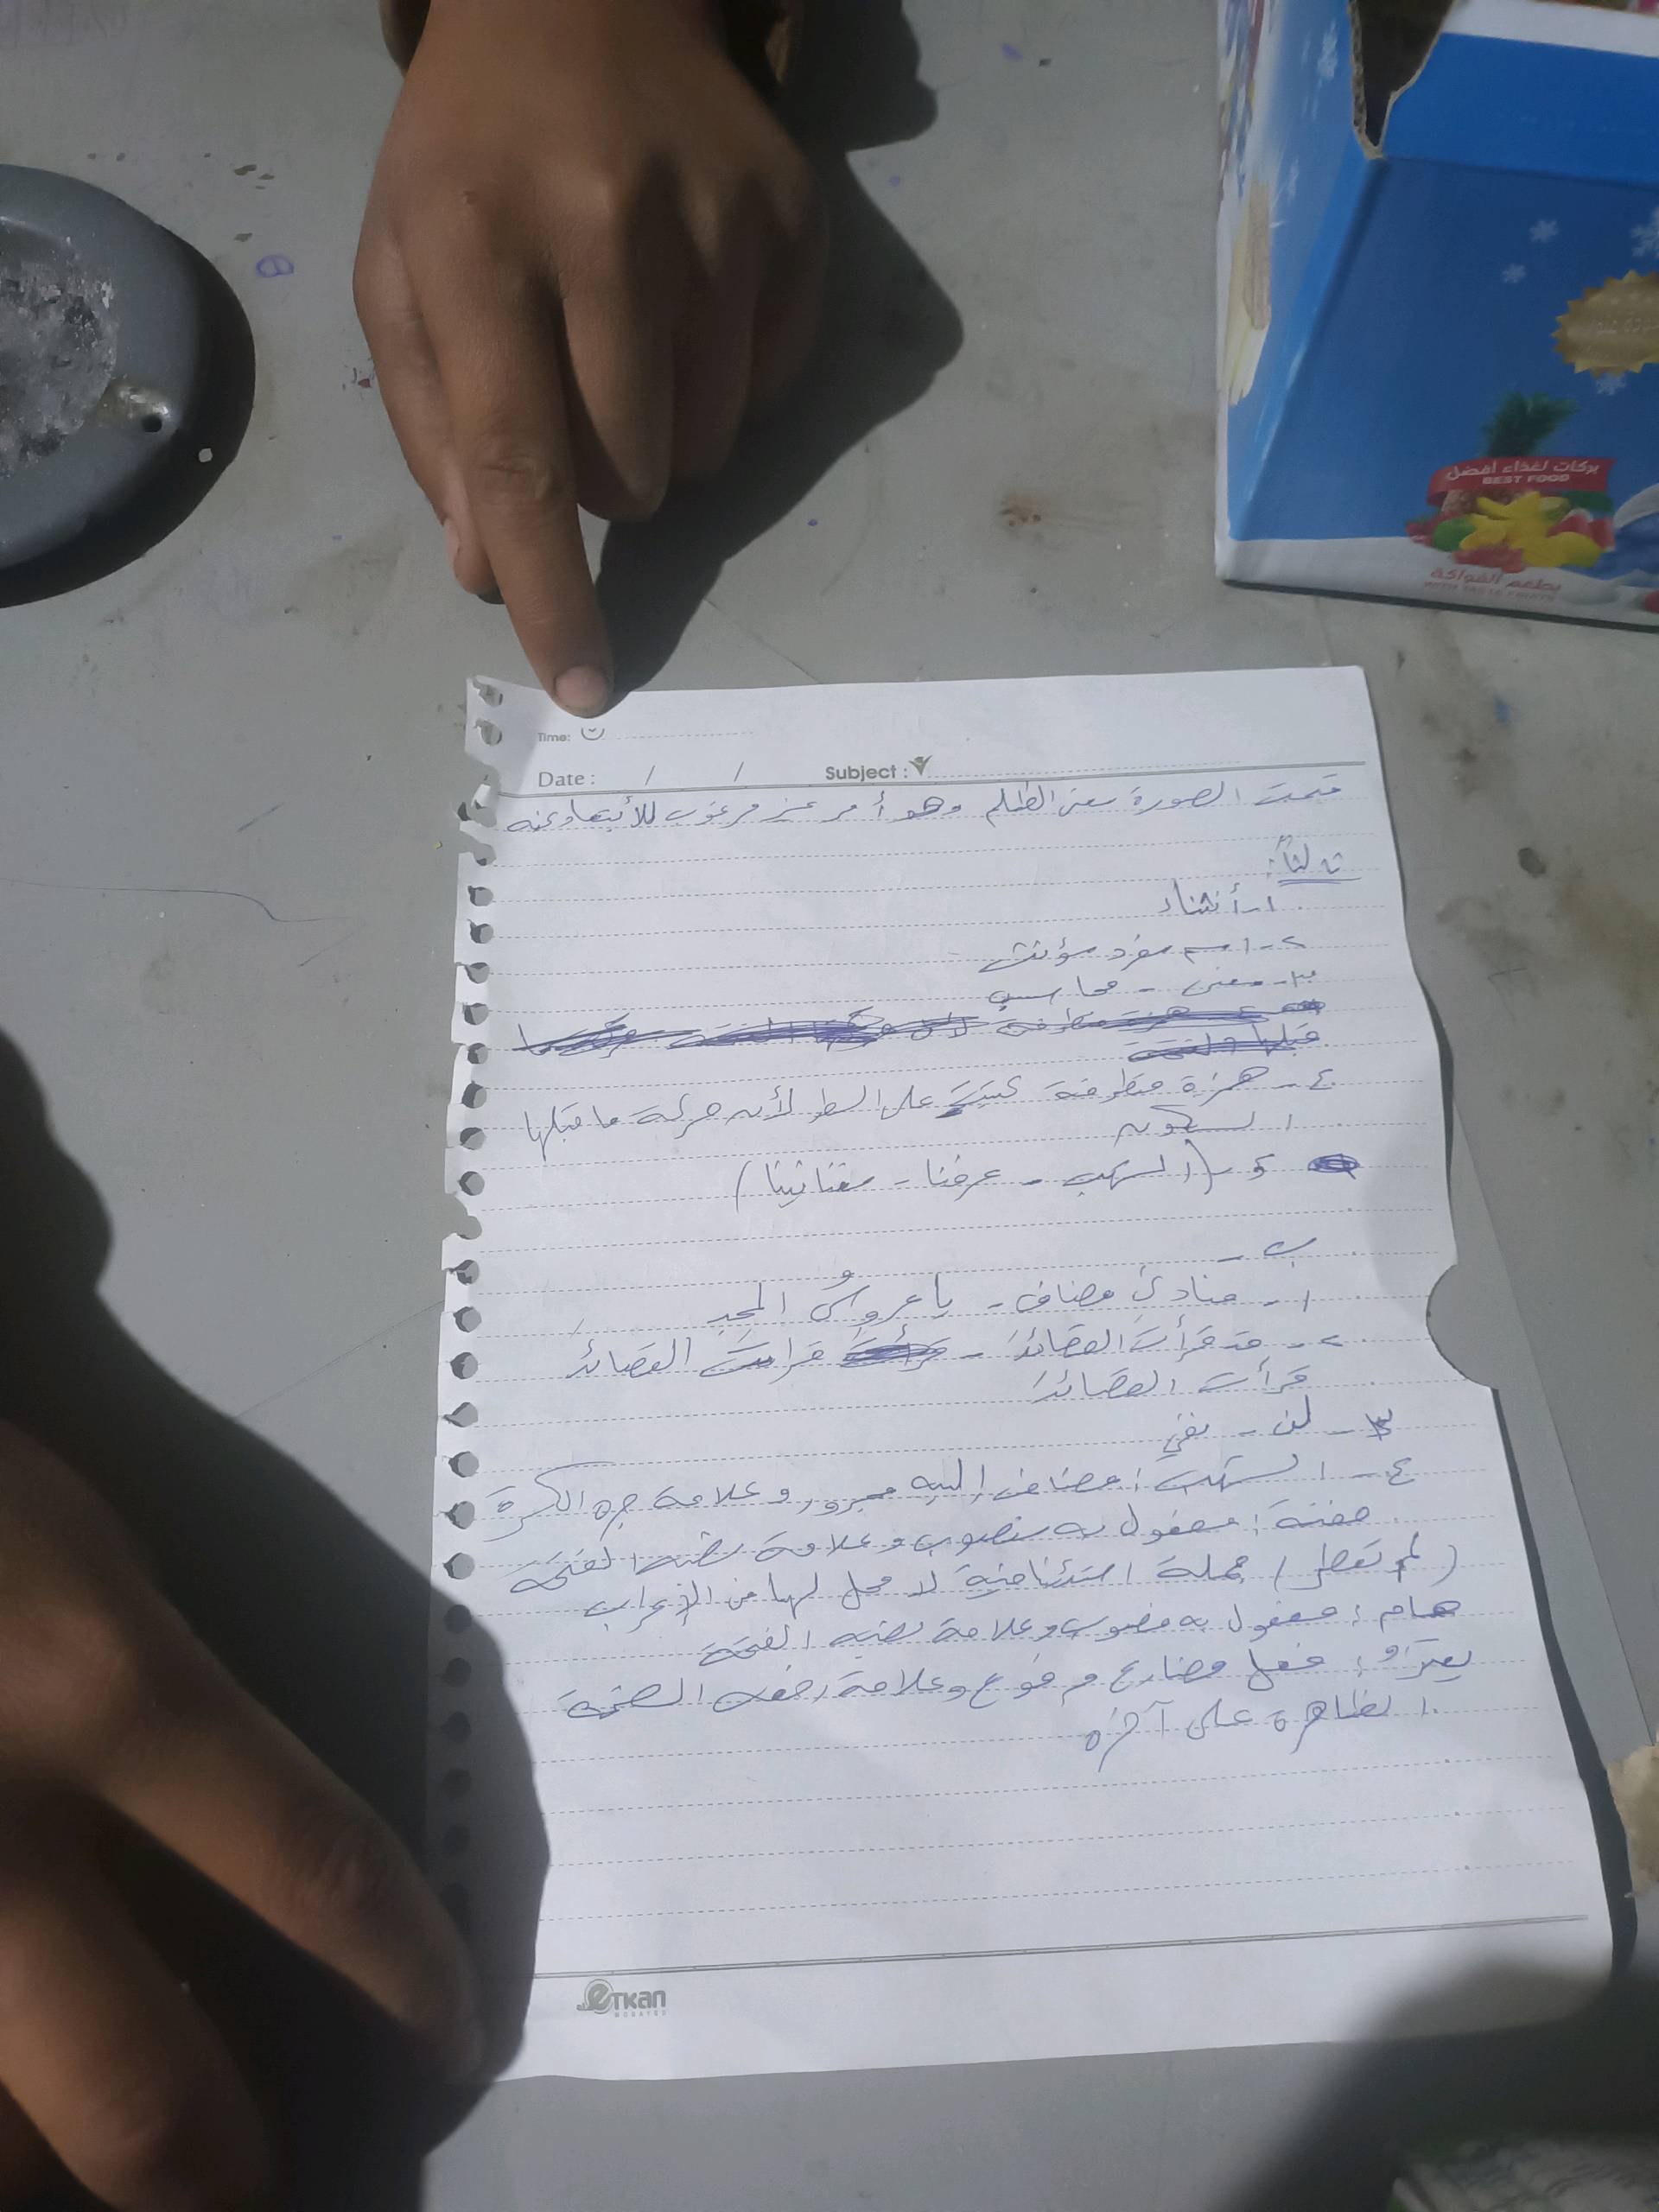 بركات لغذاء أفضل
BEST FOOD
بطعم الفواكة
Time:
Date : / / Subject :
قبحت الصورة معنى الظلم وهو أمر غير مرغوب للأبتعاد عنه
ثالثاً:
١- أنشاء
٢- اسم مفرد مؤنث
٣- معنى - محاسب
٤- همزة متطرفة كتبت على السطر لأن حركة ما قبلها
السكون
٥- (الشهب - عرفنا - مغنانينا)
ب -
١- منادى مضاف - يا عروسُ المجد
٢- قد قرأت القصائدَ - قرأت القصائدَ
قرأت القصائدَ
٣- لن - نفي
٤- الشهب : مضاف إليه مجرور وعلامة جره الكسرة
حفنة : مفعول به منصوب وعلامة نصبه الفتحة
(لم تعطر) جملة استئنافية لا محل لها من الإعراب
هام : مفعول به منصوب وعلامة نصبه الفتحة
فعل مضارع مرفوع وعلامة رفعه الضمة
الظاهرة على آخره
eTKan